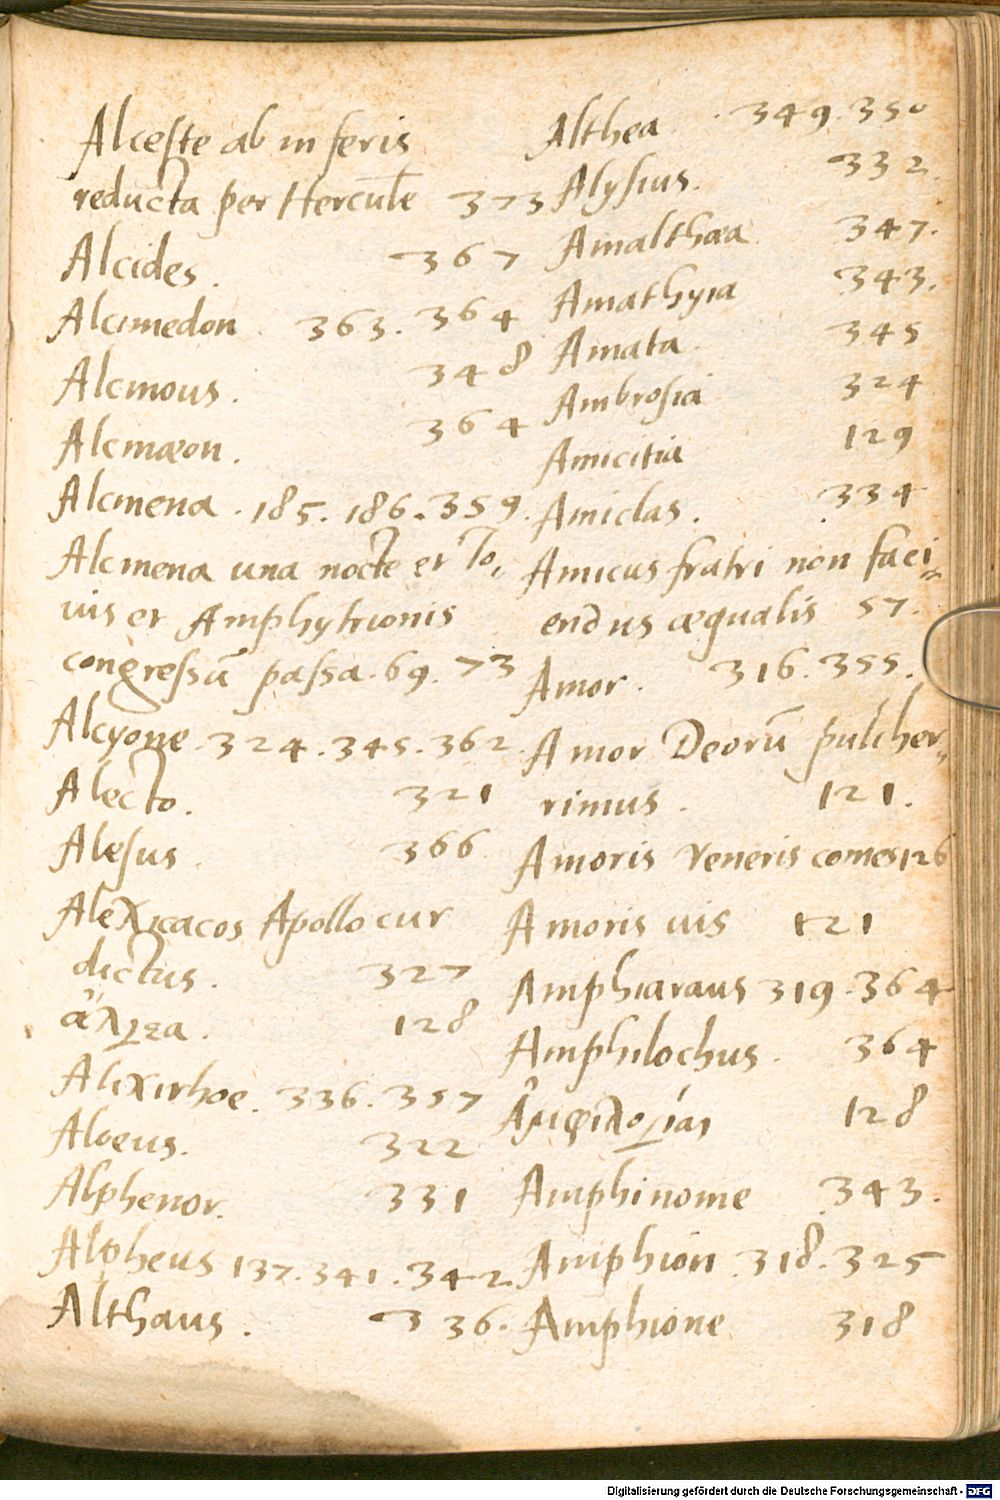 Alceste ab inferis
reducta per Herculē 373
Alcides. 367
Alcimedon. 363. 364
Alcinous. 348
Alcmæon. 364
Alcmena. 185. 186. 359.
Alcmena una nocte et Io,
uis et Amphytrionis
congressū passa. 69. 73
Alcyone. 324. 345. 362.
Alecto. 321
Alesus. 366
Alexicacos Apollo cur
dictus. 327
128
Alixirhoe. 336. 357
Aloeus. 322
Alphenor. 331
Alpheus 137. 341. 342.
Althæus. 336.
Althea. 349. 350
Alysius. 332.
Amalthæa 347.
Amathyia 343.
Amata. 345
Ambrosia 324
Amicitia 129
Amiclas. 334
Amicus fratri non faci=
endus æqualis 57.
Amor. 316. 355.
Amor Deorū pulcher=
rimus. 121.
Amoris Veneris comes 126
Amoris uis 121
Amphiaraus 319. 364
Amphilochus. 364
Ἀμφιλογίαι 128
Amphinome 343.
Amphion 318. 325
Amphione 318
Digitalisierung gefördert durch die Deutsche Forschungsgemeinschaft - DFG